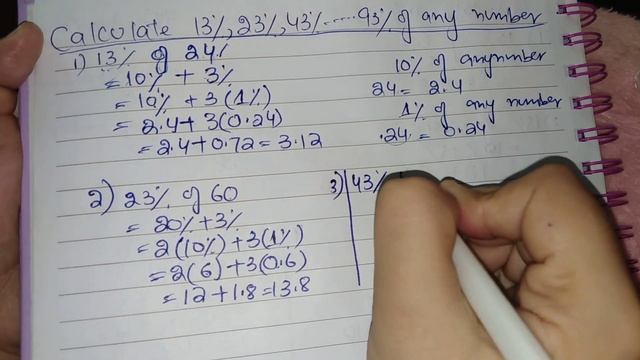 Calculate 13%, 23%, 43%.....93% of any number
1) 13% of 24%
= 10% + 3%
= 10% + 3(1%)
= 2.4 + 3(0.24)
= 2.4 + 0.72 = 3.12
10% of anynumber
24 = 2.4
1% of any number
.24. = 0.24
2) 23% of 60
= 20% + 3%
= 2(10%) + 3(1%)
= 2(6) + 3(0.6)
= 12 + 1.8 = 13.8
3) 43%